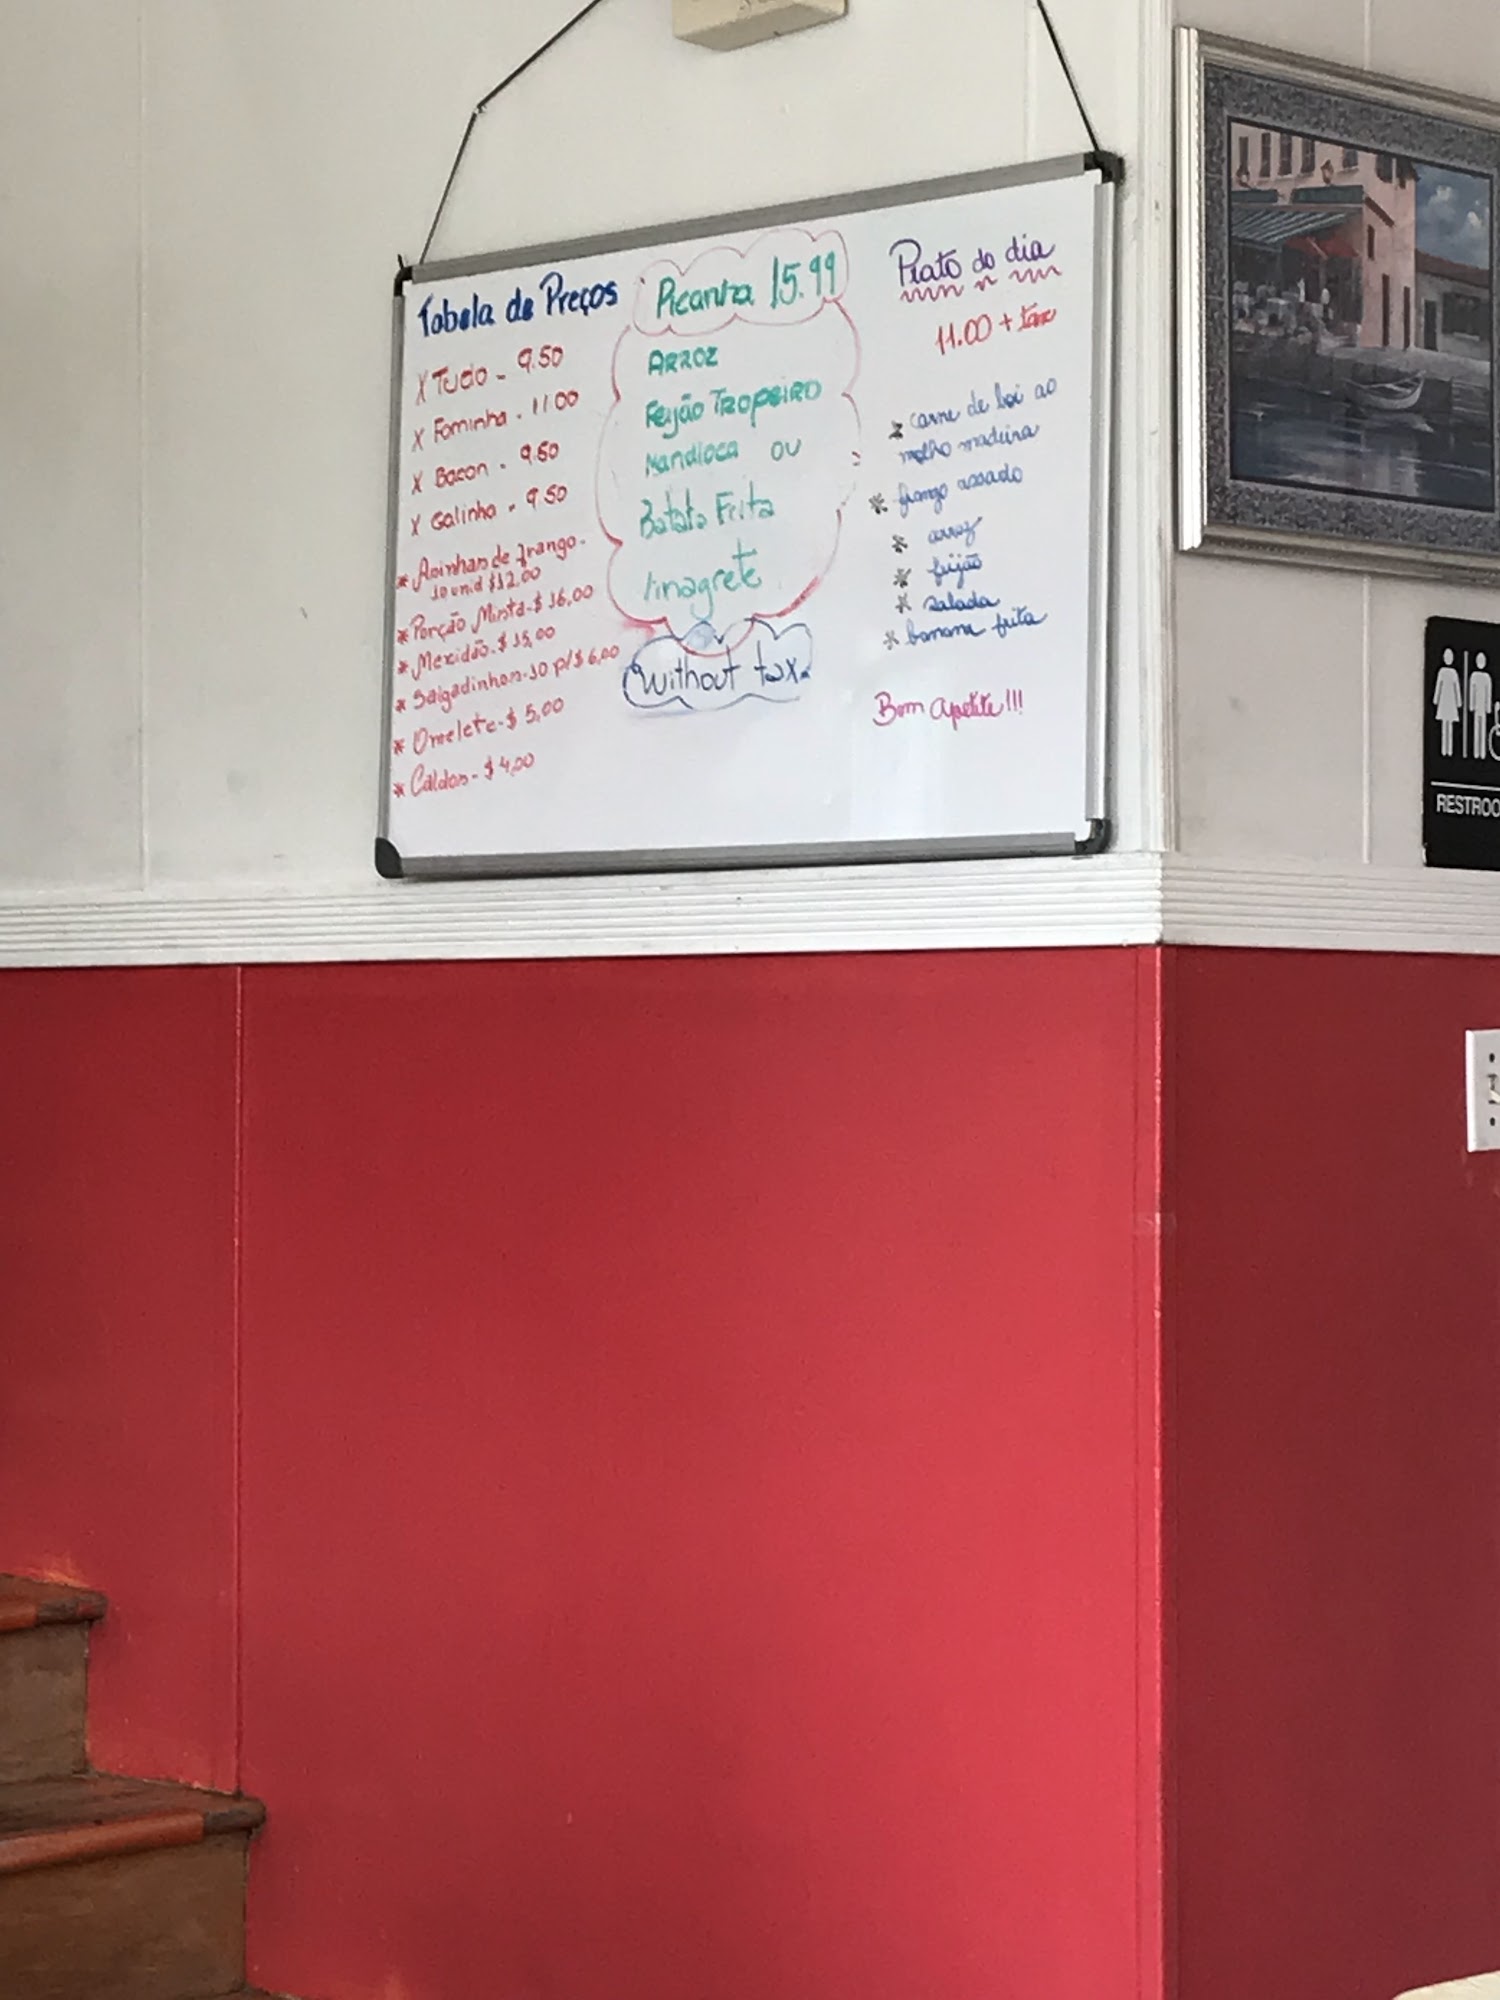 Tabela de Preços
X Tudo - 9.50
X Fominha - 11.00
X Bacon - 9.50
X Galinha - 9.50
* Asinhas de frango -
10 unid $12,00
* Porção Mista - $ 16,00
* Mexidão - $ 15,00
* Salgadinhos - 10 p/ $ 6,00
* Omelete - $ 5,00
* Caldos - $ 4,00
Picanha 15.99
ARROZ
Feijão TROPEIRO
Mandioca OU
Batata Frita
Vinagrete
Without tax.
Prato do dia
11.00 + tax
* carne de boi ao
molho madeira
* frango assado
* arroz
* feijão
* salada
* banana frita
Bom apetite!!!
RESTROO